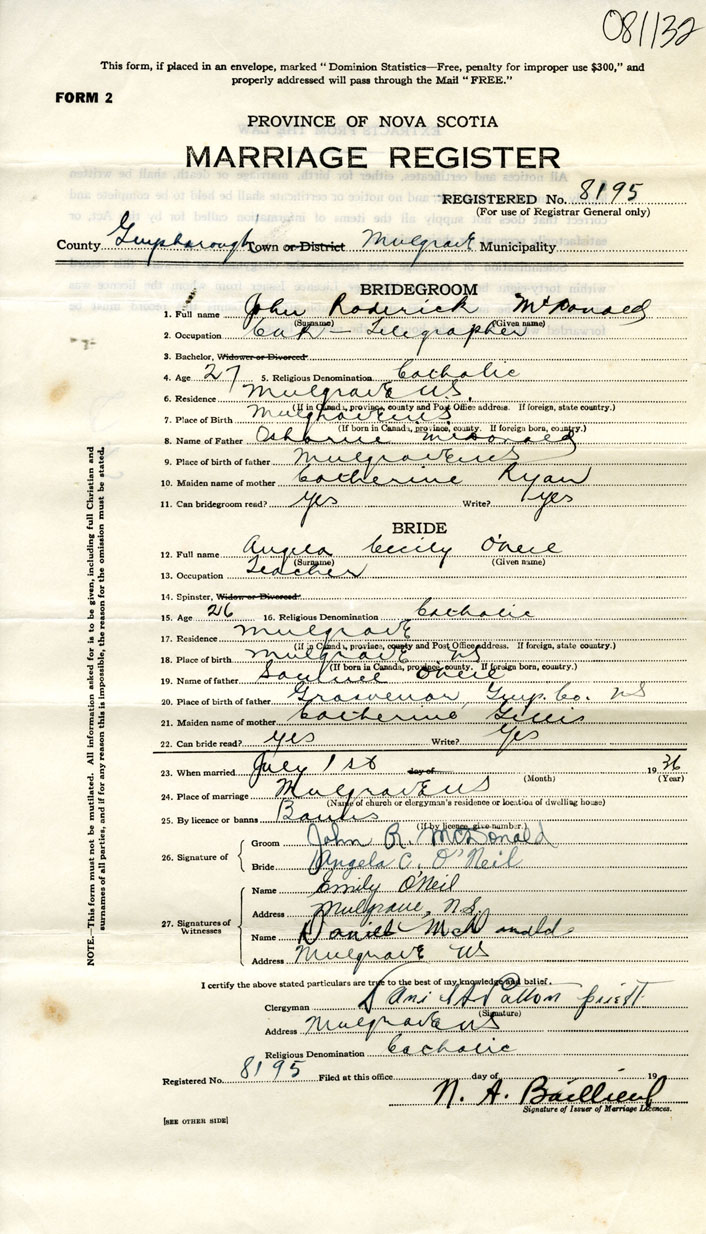 081132
This form, if placed in an envelope, marked "Dominion Statistics—Free, penalty for improper use $300," and
properly addressed will pass through the Mail "FREE."
FORM 2
PROVINCE OF NOVA SCOTIA
MARRIAGE REGISTER
REGISTERED No. 8195
(For use of Registrar General only)
County Guysborough Town or District Mulgrave Municipality
BRIDEGROOM
1. Full name John Roderick McDonald
(Surname) (Given name)
2. Occupation Telegrapher
3. Bachelor, Widower or Divorced
4. Age 27 5. Religious Denomination Catholic
6. Residence Mulgrave NS.
(If in Canada, province, county and Post Office address. If foreign, state country.)
7. Place of Birth Mulgrave NS
(If born in Canada, province, county. If foreign born, country.)
8. Name of Father Osborne McDonald
9. Place of birth of father Mulgrave NS
10. Maiden name of mother Catherine Ryan
11. Can bridegroom read? Yes Write? Yes
BRIDE
12. Full name Angela Cecily O'Neil
(Surname) (Given name)
13. Occupation Teacher
14. Spinster, Widow or Divorced
15. Age 26 16. Religious Denomination Catholic
17. Residence Mulgrave
(If in Canada, province, county and Post Office address. If foreign, state country.)
18. Place of birth Mulgrave NS
(If born in Canada, province, county. If foreign born, country.)
19. Name of father Samuel O'Neil
20. Place of birth of father Grosvenor, Guys. Co. NS
21. Maiden name of mother Catherine Gillis
22. Can bride read? Yes Write? Yes
23. When married July 1st day of 1936
(Month) (Year)
24. Place of marriage Mulgrave NS
(Name of church or clergyman's residence or location of dwelling house)
25. By licence or banns Banns
(If by licence, give number.)
26. Signature of
Groom John R. McDonald
Bride Angela C. O'Neil
27. Signatures of Witnesses
Name Emily O'Neil
Address Mulgrave, N.S.
Name Daniel McDonald
Address Mulgrave NS
I certify the above stated particulars are true to the best of my knowledge and belief.
Clergyman priest
(Signature)
Address Mulgrave NS
Religious Denomination Catholic
Registered No. 8195 Filed at this office day of 19
N. A.
Signature of Issuer of Marriage Licences.
[SEE OTHER SIDE]
NOTE.—This form must not be mutilated. All information asked for is to be given, including full Christian and
surnames of all parties, and if for any reason this is impossible, the reason for the omission must be stated.